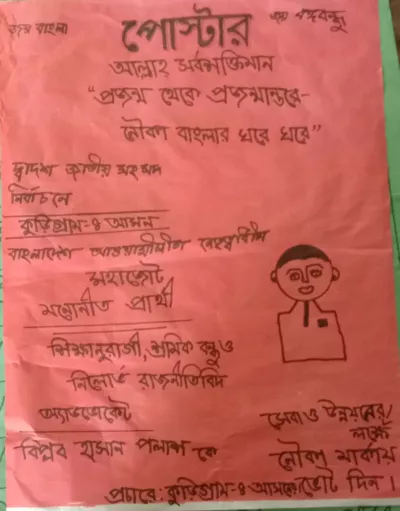 জয় বাংলা
পোস্টার
জয় বঙ্গবন্ধু
আল্লাহ্ সর্বশক্তিমান
“প্রজন্ম থেকে প্রজন্মান্তরে-
নৌকা বাংলার ঘরে ঘরে”
দ্বাদশ জাতীয় সংসদ
নির্বাচনে
কুড়িগ্রাম-৪ আসন
বাংলাদেশ আওয়ামীলীগ নেতৃত্বাধীন
মহাজোট
মনোনীত প্রার্থী
শিক্ষানুরাগী, শ্রমিক বন্ধু ও
নির্লোভ রাজনীতিবিদ
অ্যাডভোকেট
বিপ্লব হাসান পলাশ কে
সেবা ও উন্নয়নের
লক্ষ্যে
নৌকা মার্কায়
ভোট দিন।
প্রচারে: কুড়িগ্রাম-৪